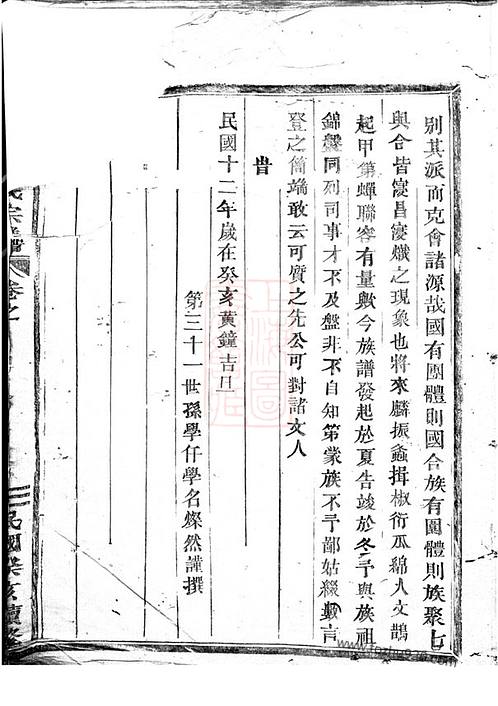 別其派而克會諸源哉國有團體則國合族有團體則族聚
與合皆寖昌寖熾之現象也將來麟振螽揖椒衍瓜綿人文鵲
起甲第蟬聯容有量歟今族譜發起於夏告竣於冬予與族祖
錦馨同列司事才不及盤非不自知第蒙族不予鄙姑綴數言
登之簡端敢云可質之先公可對諸文人
時
民國十二年歲在癸亥黃鐘吉日
第三十一世孫學仟學名燦然謹撰
宗譜
卷之
民國癸亥續修